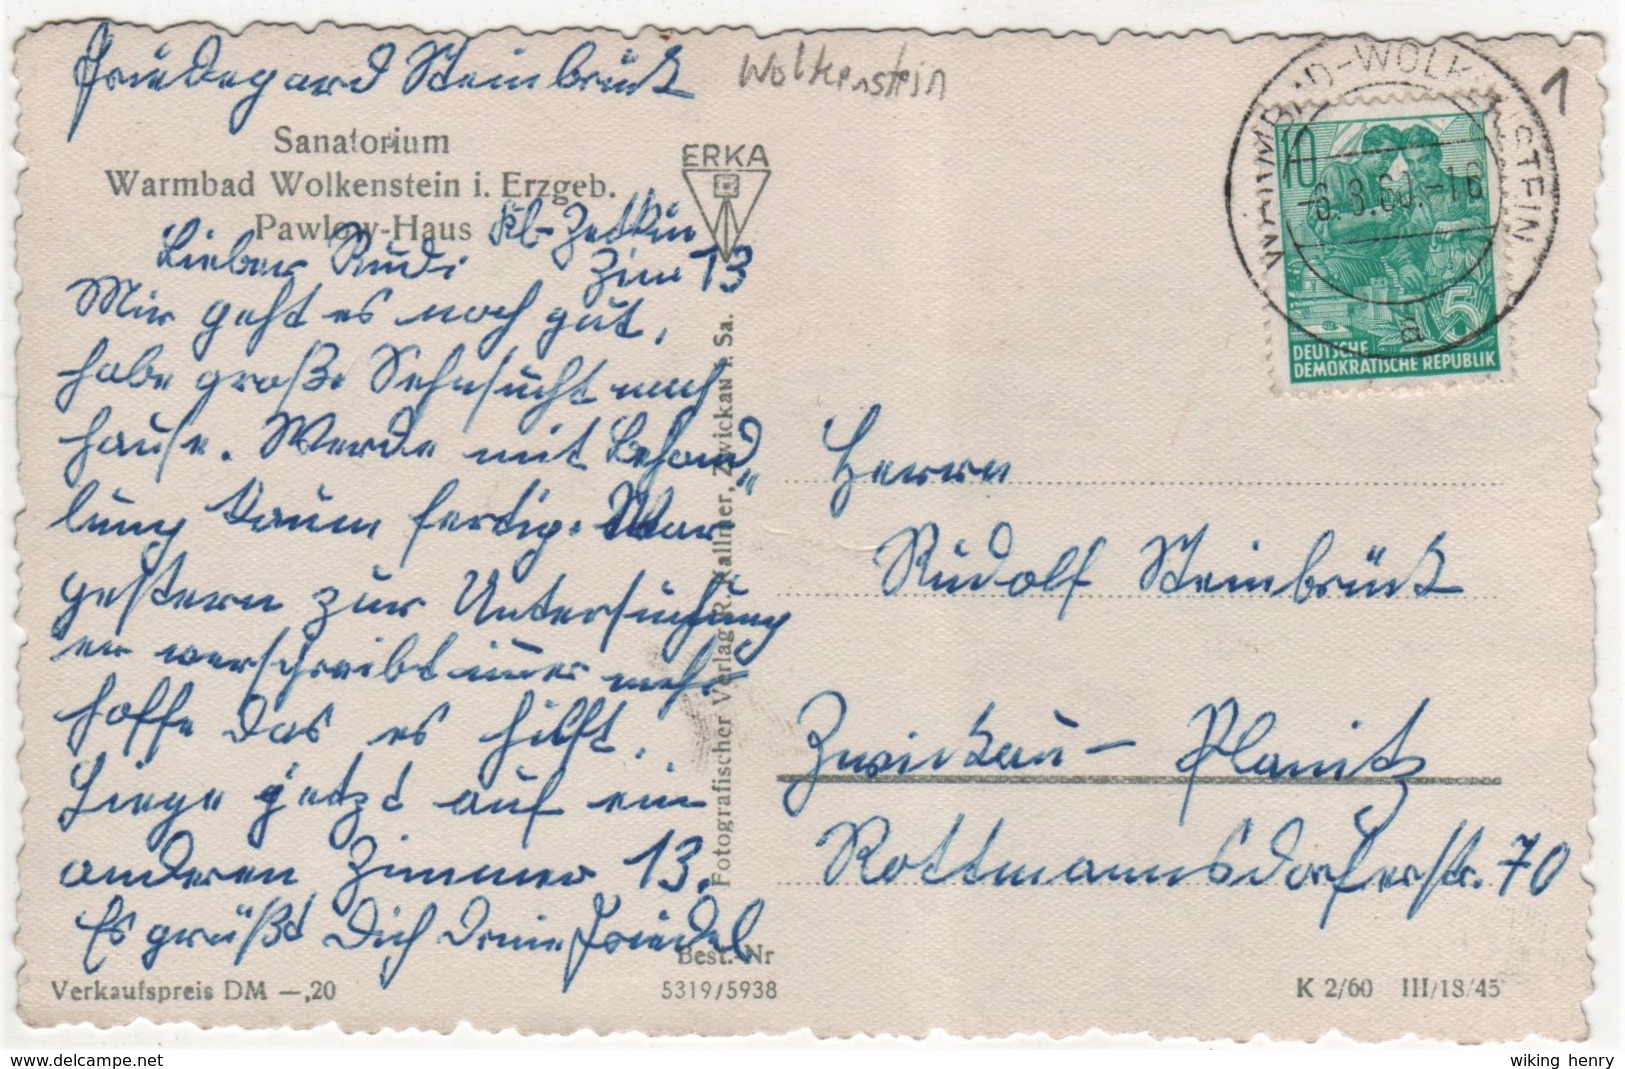 Friedegard Steinbrück
Wolkenstein
1
Sanatorium
Warmbad Wolkenstein i. Erzgeb.
Pawlow-Haus
Kl-Zetkin
Zim 13
ERKA
Lieber Rudi
Mir geht es noch gut,
habe große Sehnsucht nach
hause. Werde mit Behand„
lung kaum fertig. War
gestern zur Untersuchung
er verschreibt immer mehr
hoffe das es hilft.
Liege jetzt auf ein
anderen Zimmer 13.
Es grüßt Dich Deine Friedel
Verkaufspreis DM —,20
Best.-Nr
5319/5938
Fotografischer Verlag R. Kallmer, Zwickau i. Sa.
WARMBAD-WOLKENSTEIN
-6.8.60.-16
a
10
5
DEUTSCHE
DEMOKRATISCHE REPUBLIK
Herrn
Rudolf Steinbrück
Zwickau - Planitz
Rottmannsdorferstr. 70
K 2/60 III/18/45
wiking henry
www.delcampe.net